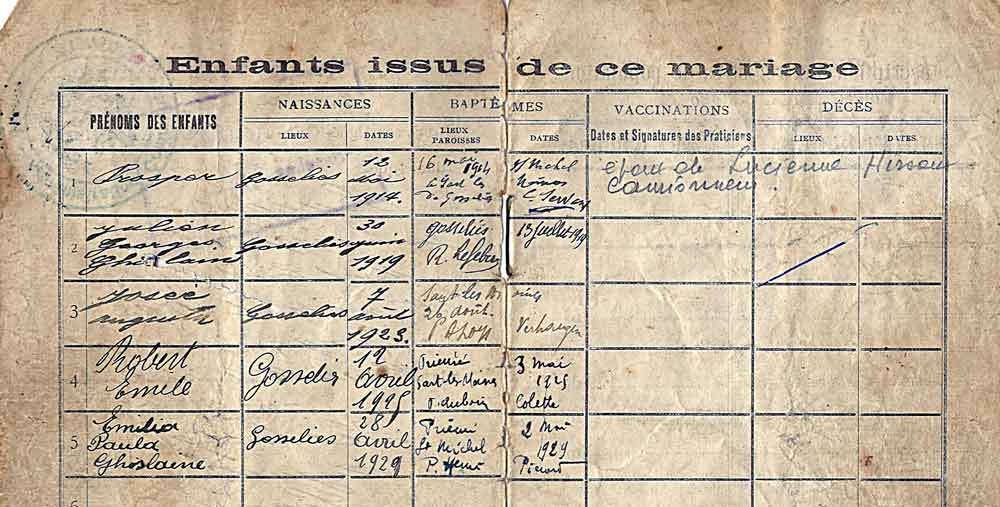 Enfants issus de ce mariage
PRÉNOMS DES ENFANTS
NAISSANCES
BAPTÊMES
VACCINATIONS
DÉCÈS
LIEUX
DATES
LIEUX
PAROISSES
DATES
Dates et Signatures des Praticiens
LIEUX
DATES
1
Prosper
Gosselies
12
Mai
1914.
16 mai
1914
St Michel
époux de Lucienne
Camionneur.
2
Julien
Georges
Ghislain
Gosselies
30
juin
1919
Gosselies
R. Lefebvre
13 juillet 1919
3
Josée
Gosselies
7
août
1923.
Sart-les-Moines
août.
Verhaegen
4
Robert
Emile
Gosselies
12
avril
1925
Prieuré
Sart-les-Moines
3 mai
1925
Colette
5
Emilia
Paula
Ghislaine
Gosselies
28
avril
1929
Prieuré
St Michel
P. Henri
2 Mai
1929
6